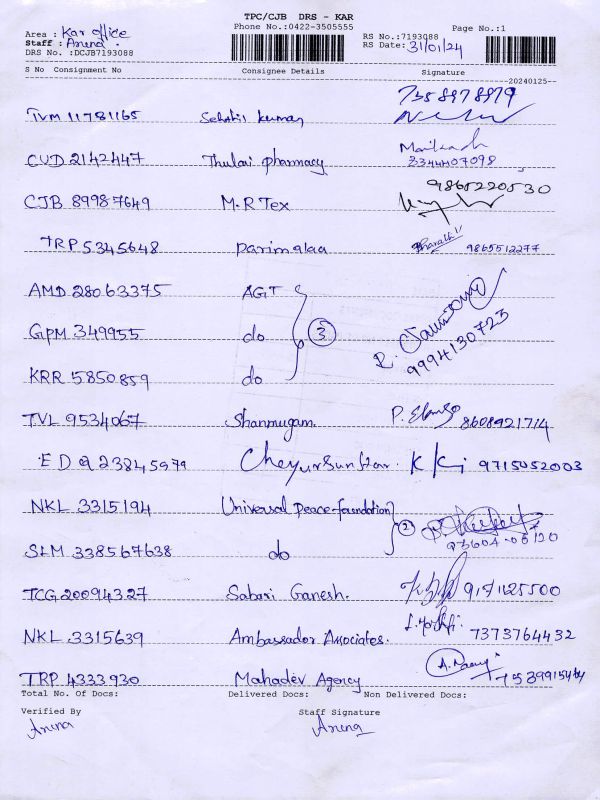 TPC/CJB DRS - KAR
Phone No.:0422-3505555
Page No.:1
Area : Kar office
Staff : Aruna
DRS No. :DCJB7193088
RS No.:7193088
RS Date: 31/01/24
S No Consignment No Consignee Details Signature
20240125
TVM 11781165 Sehthil kumar 7358978979
CUD 2142447 Thulai pharmacy 3344407098
CJB 89987649 M.R Tex 9865220530
TRP 5345648 Parimalaa Bharathi 9865512277
AMD 28063375 AGT
GPM 349955 do 3 9994130723
KRR 5850859 do
TVL 9534067 Shanmugam. 8608921714
ED Q 23845979 Cheyur Sun Star. 9715052003
NKL 3315194 Universal peace-foundation
SLM 338567638 do 2
TCG 20094327 Sabari Ganesh. 9171125500
NKL 3315639 Ambassador Associates. 7373764432
TRP 4333930 Mahadev Agency
Total No. Of Docs: Delivered Docs: Non Delivered Docs:
Verified By Staff Signature
Aruna Aruna